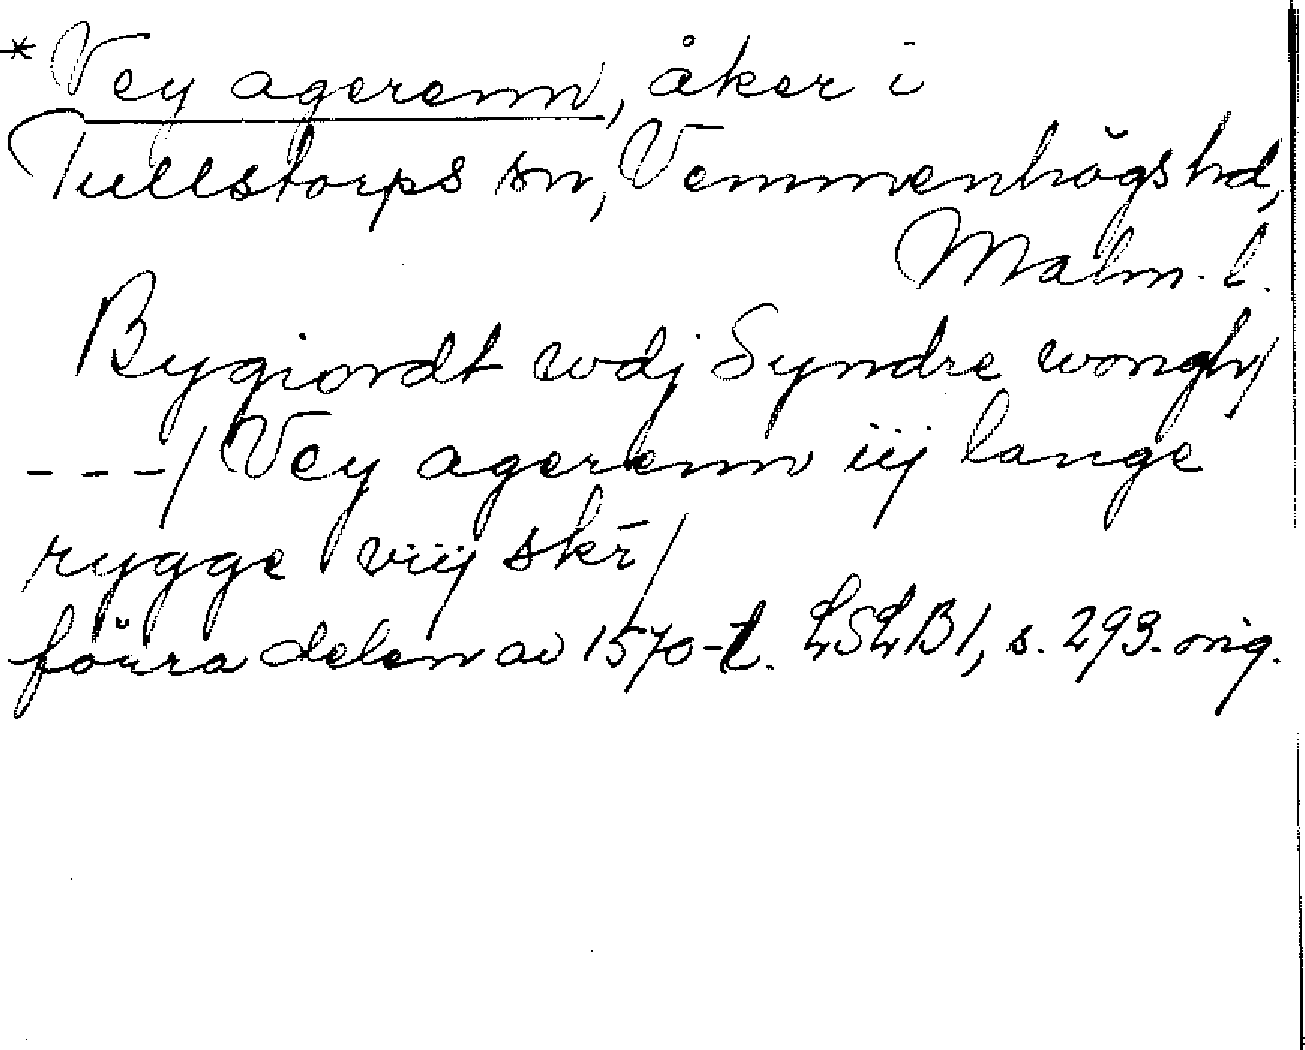 *Vey agerenn, åker i
Tullstorps sn, Vemmenhögs hd,
Malm. l.
Bygiordt wdj Syndre wongh/
---/ Vey agerenn iij lange
rygge viij skr̄/
förra delen av 1570-t. LSLB1, s. 293. orig.